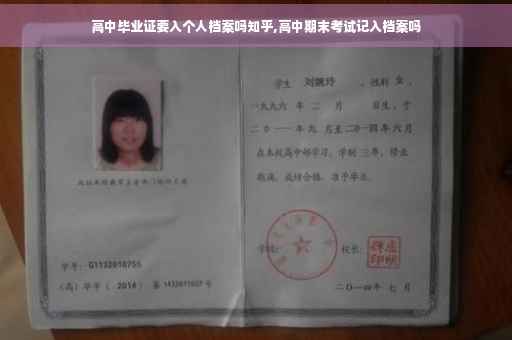 高中毕业证要入个人档案吗知乎,高中期末考试记入档案吗
学生 刘婉玲 , 性别 女 ,
一九九六 年 二 月 日生, 于
二〇一一 年 九 月至 二〇一四 年 六 月
在本校高中部学习, 学制 三 年, 修业
期满, 成绩合格, 准予毕业.
学号: G1132010755
学校: 校长:
(高) 毕字 ( 2014 ) 第 1432011007 号
二〇一四年 七 月